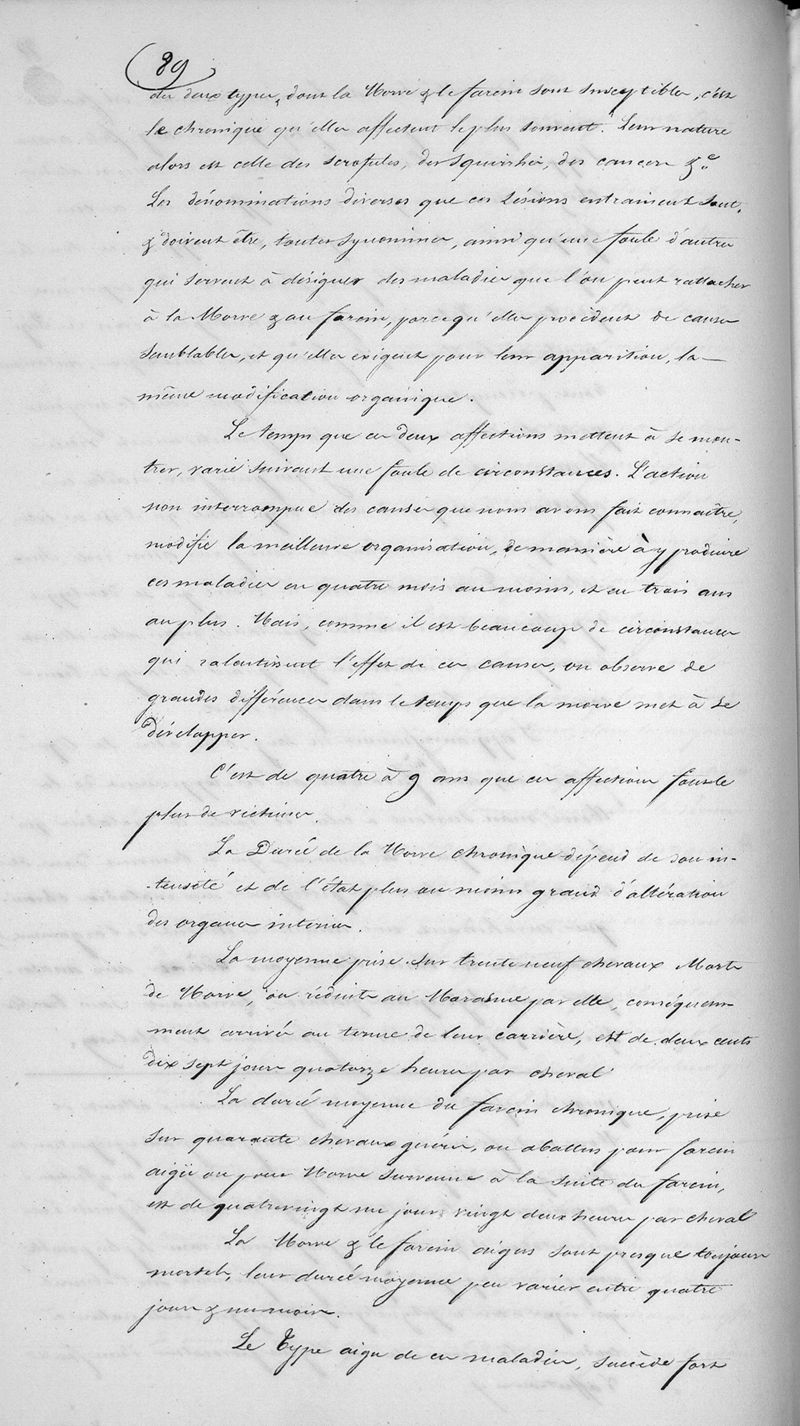 89
des deux types, dont la Morve & le farcin sont susceptibles, c'est
le chronique qu'elles affectent le plus souvent. Leur nature
alors est celle des scrofules, des squirrhes, des cancers &c.
Les dénominations diverses que ces Lésions entrainent sont,
& doivent être, toutes synonimes, ainsi qu'une foule d'autres
qui servent à désigner des maladies que l'on peut rattacher
à la Morve & au farcin, parce qu'elles procèdent de causes
semblables, et qu'elles exigent pour leur apparition, la
même modification organique.
Le temps que ces deux affections mettent à se mon-
trer, varie suivant une foule de circonstances. L'action
non interrompue des causes que nous avons fait connaître,
modifie la meilleure organisation, de manière à y produire
ces maladies en quatre mois au moins, et en trois ans
au plus. Mais, comme il est beaucoup de circonstances
qui ralentissent l'effet de ces causes, on observe de
grandes différences dans le temps que la morve met à se
développer.
C'est de quatre à 9 ans que ces affections font le
plus de victimes.
La Durée de la Morve chronique dépend de son in-
-tensité et de l'état plus ou moins grand d'altération
des organes internes.
La moyenne prise sur trente neuf chevaux Morts
de Morve, ou réduits au Marasme par elle, conséquem-
ment arrivés au terme de leur carrière, est de deux cents
dix sept jours quatorze heures par cheval
La durée moyenne du farcin chronique, prise
sur quarante chevaux guéris, ou abattus pour farcin
aigü ou pour Morve survenue à la suite du farcin,
est de quatrevingt un jours vingt deux heures par cheval
La Morve & le farcin aigus sont presque toujours
mortels, leur durée moyenne peu varier entre quatre
jours & un mois.
Le Type aigu de ces maladies, succède fort